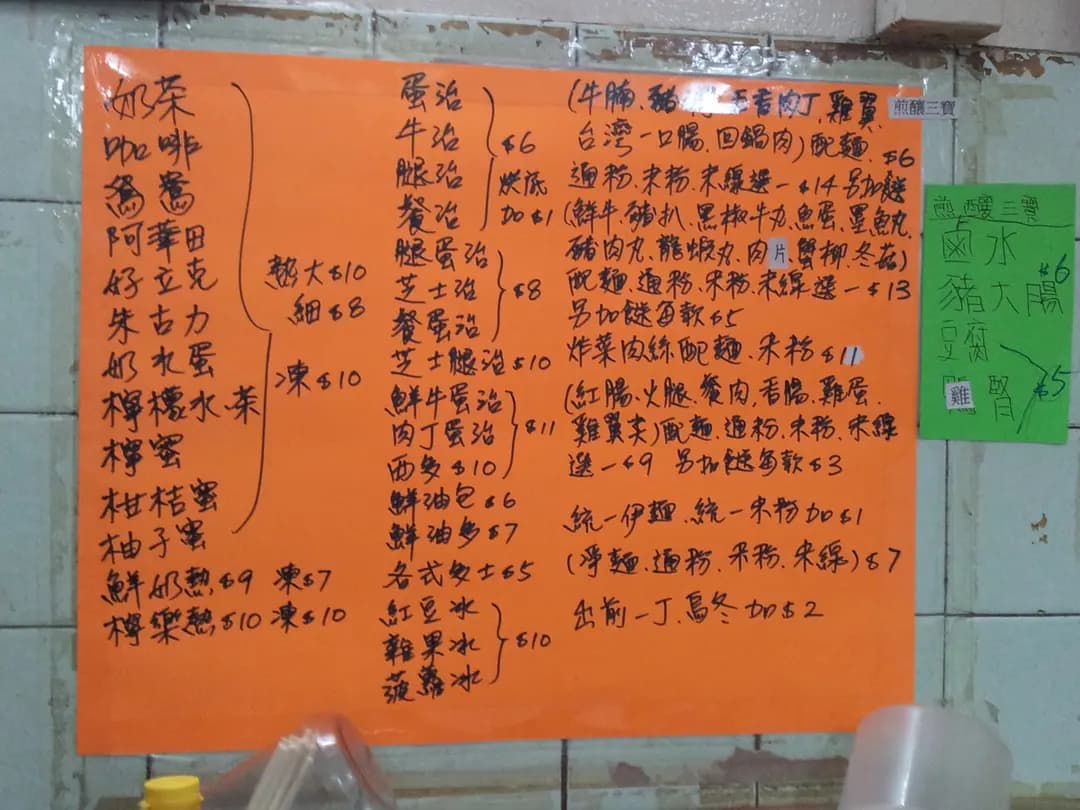 奶茶
咖啡
鴛鴦
阿華田
好立克
朱古力
奶水蛋
檸檬水、茶
檸蜜
柑桔蜜
柚子蜜
熱大$10
細$8
凍$10
鮮奶熱$9 凍$7
檸樂熱$10 凍$10
蛋治
牛治
腿治
餐治
$6
烘底
加$1
腿蛋治
芝士治
餐蛋治
$8
芝士腿治$10
鮮牛蛋治
肉丁蛋治
$11
西多$10
鮮油包$6
鮮油多$7
各式多士$5
紅豆冰
雜果冰
菠蘿冰
$10
(牛腩、豬 五香肉丁、雞翼、
台灣一口腸、回鍋肉)配麵、
$6
通粉、米粉、米線選一$14另加餸
(鮮牛、豬扒、黑椒牛力、魚蛋、墨魚丸、
豬肉丸、龍蝦丸、肉片、蟹柳、冬菇)
配麵、通粉、米粉、米線選一$13
另加餸每款$5
炸菜肉絲配麵、米粉$11
(紅腸、火腿、餐肉、香腸、雞蛋、
雞翼尖)配麵、通粉、米粉、米線
選一$9 另加餸每款$3
統一伊麵、統一米粉加$1
(淨麵、通粉、米粉、米線)$7
出前一丁、烏冬加$2
煎釀三寶
煎釀三寶
鹵水
豬大腸
$6
豆腐
雞腎
$5